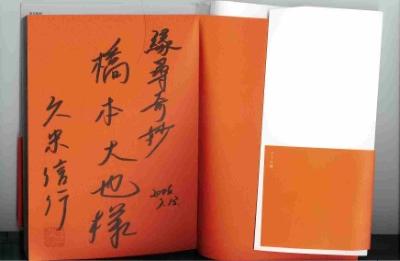 縁尋奇妙
橋本大也様
2006
久米信行